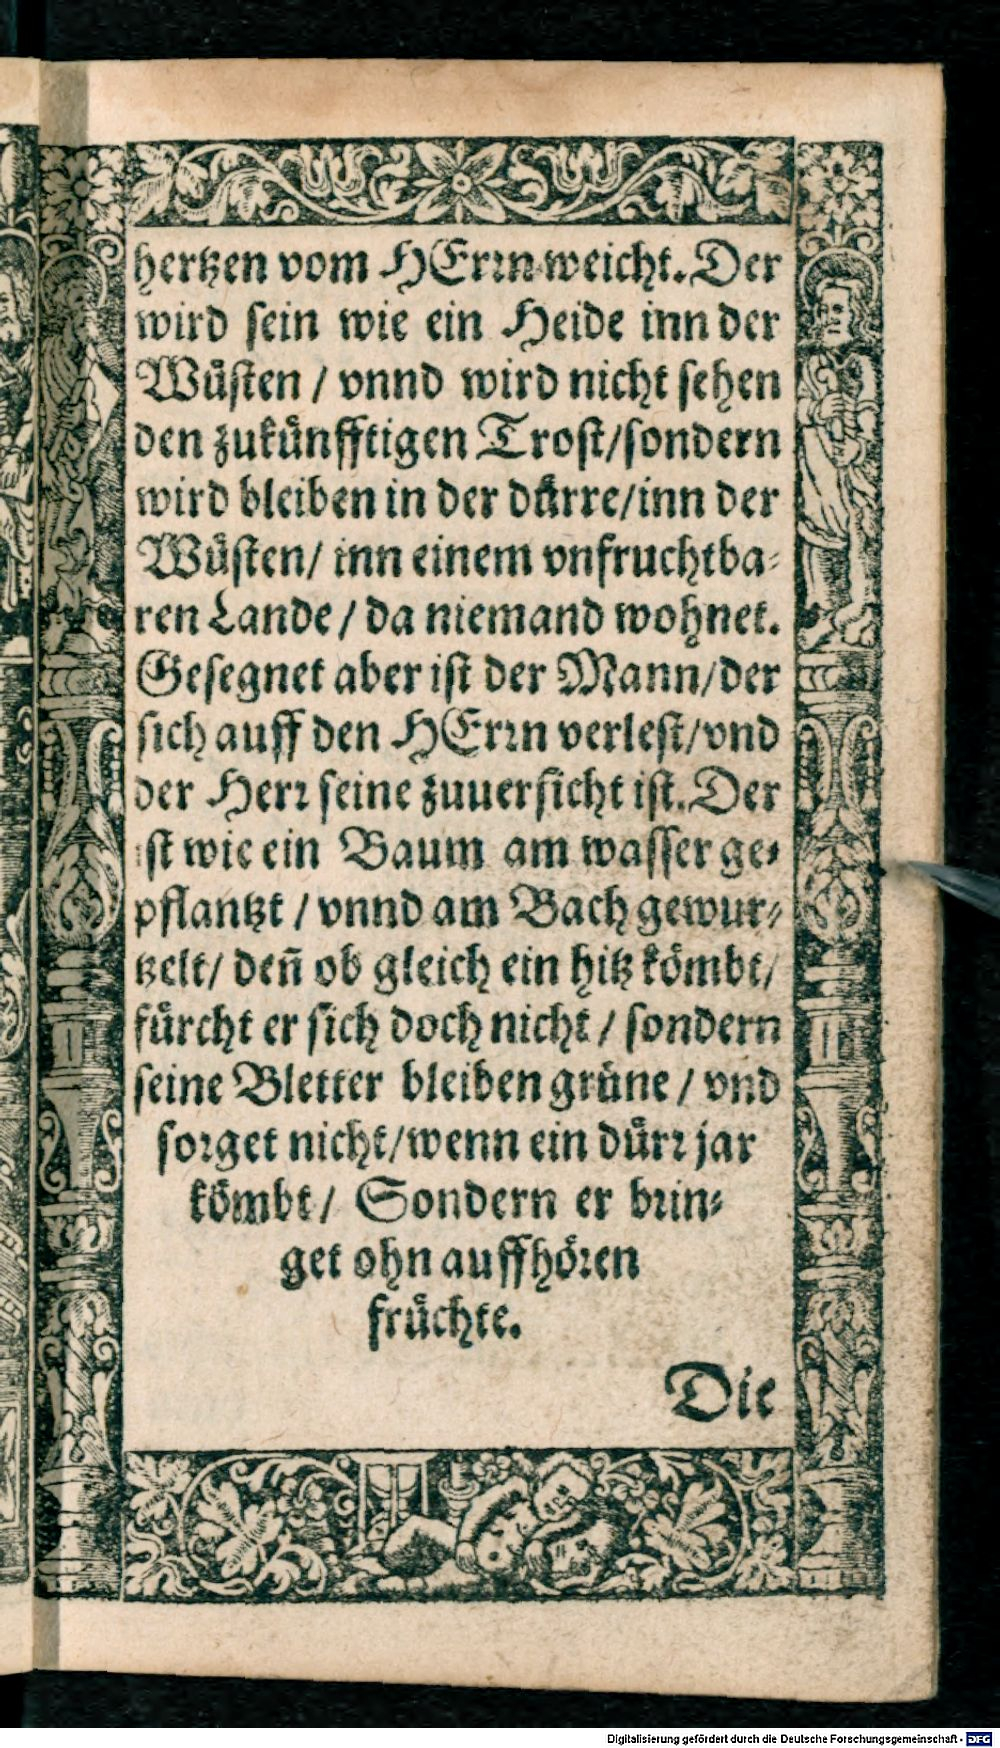 hertzen vom HErrn weicht. Der
wird sein wie ein Heide inn der
Wuͤsten / vnnd wird nicht sehen
den zukuͤnfftigen Trost/sondern
wird bleiben in der duͤrre/inn der
Wuͤsten/ inn einem vnfruchtba-
ren Lande / da niemand wohnet.
Gesegnet aber ist der Mann/der
sich auff den HErrn verlest/vnd
der Herr seine zuuersicht ist. Der
ist wie ein Baum am wasser ge-
pflantzt / vnnd am Bach gewur-
tzelt/ den̄ ob gleich ein hitz koͤmbt/
fuͤrcht er sich doch nicht / sondern
seine Bletter bleiben gruͤne / vnd
sorget nicht/wenn ein duͤrr jar
koͤmbt/ Sondern er brin-
get ohn auffhoͤren
fruͤchte.
Die
Digitalisierung gefördert durch die Deutsche Forschungsgemeinschaft - DFG